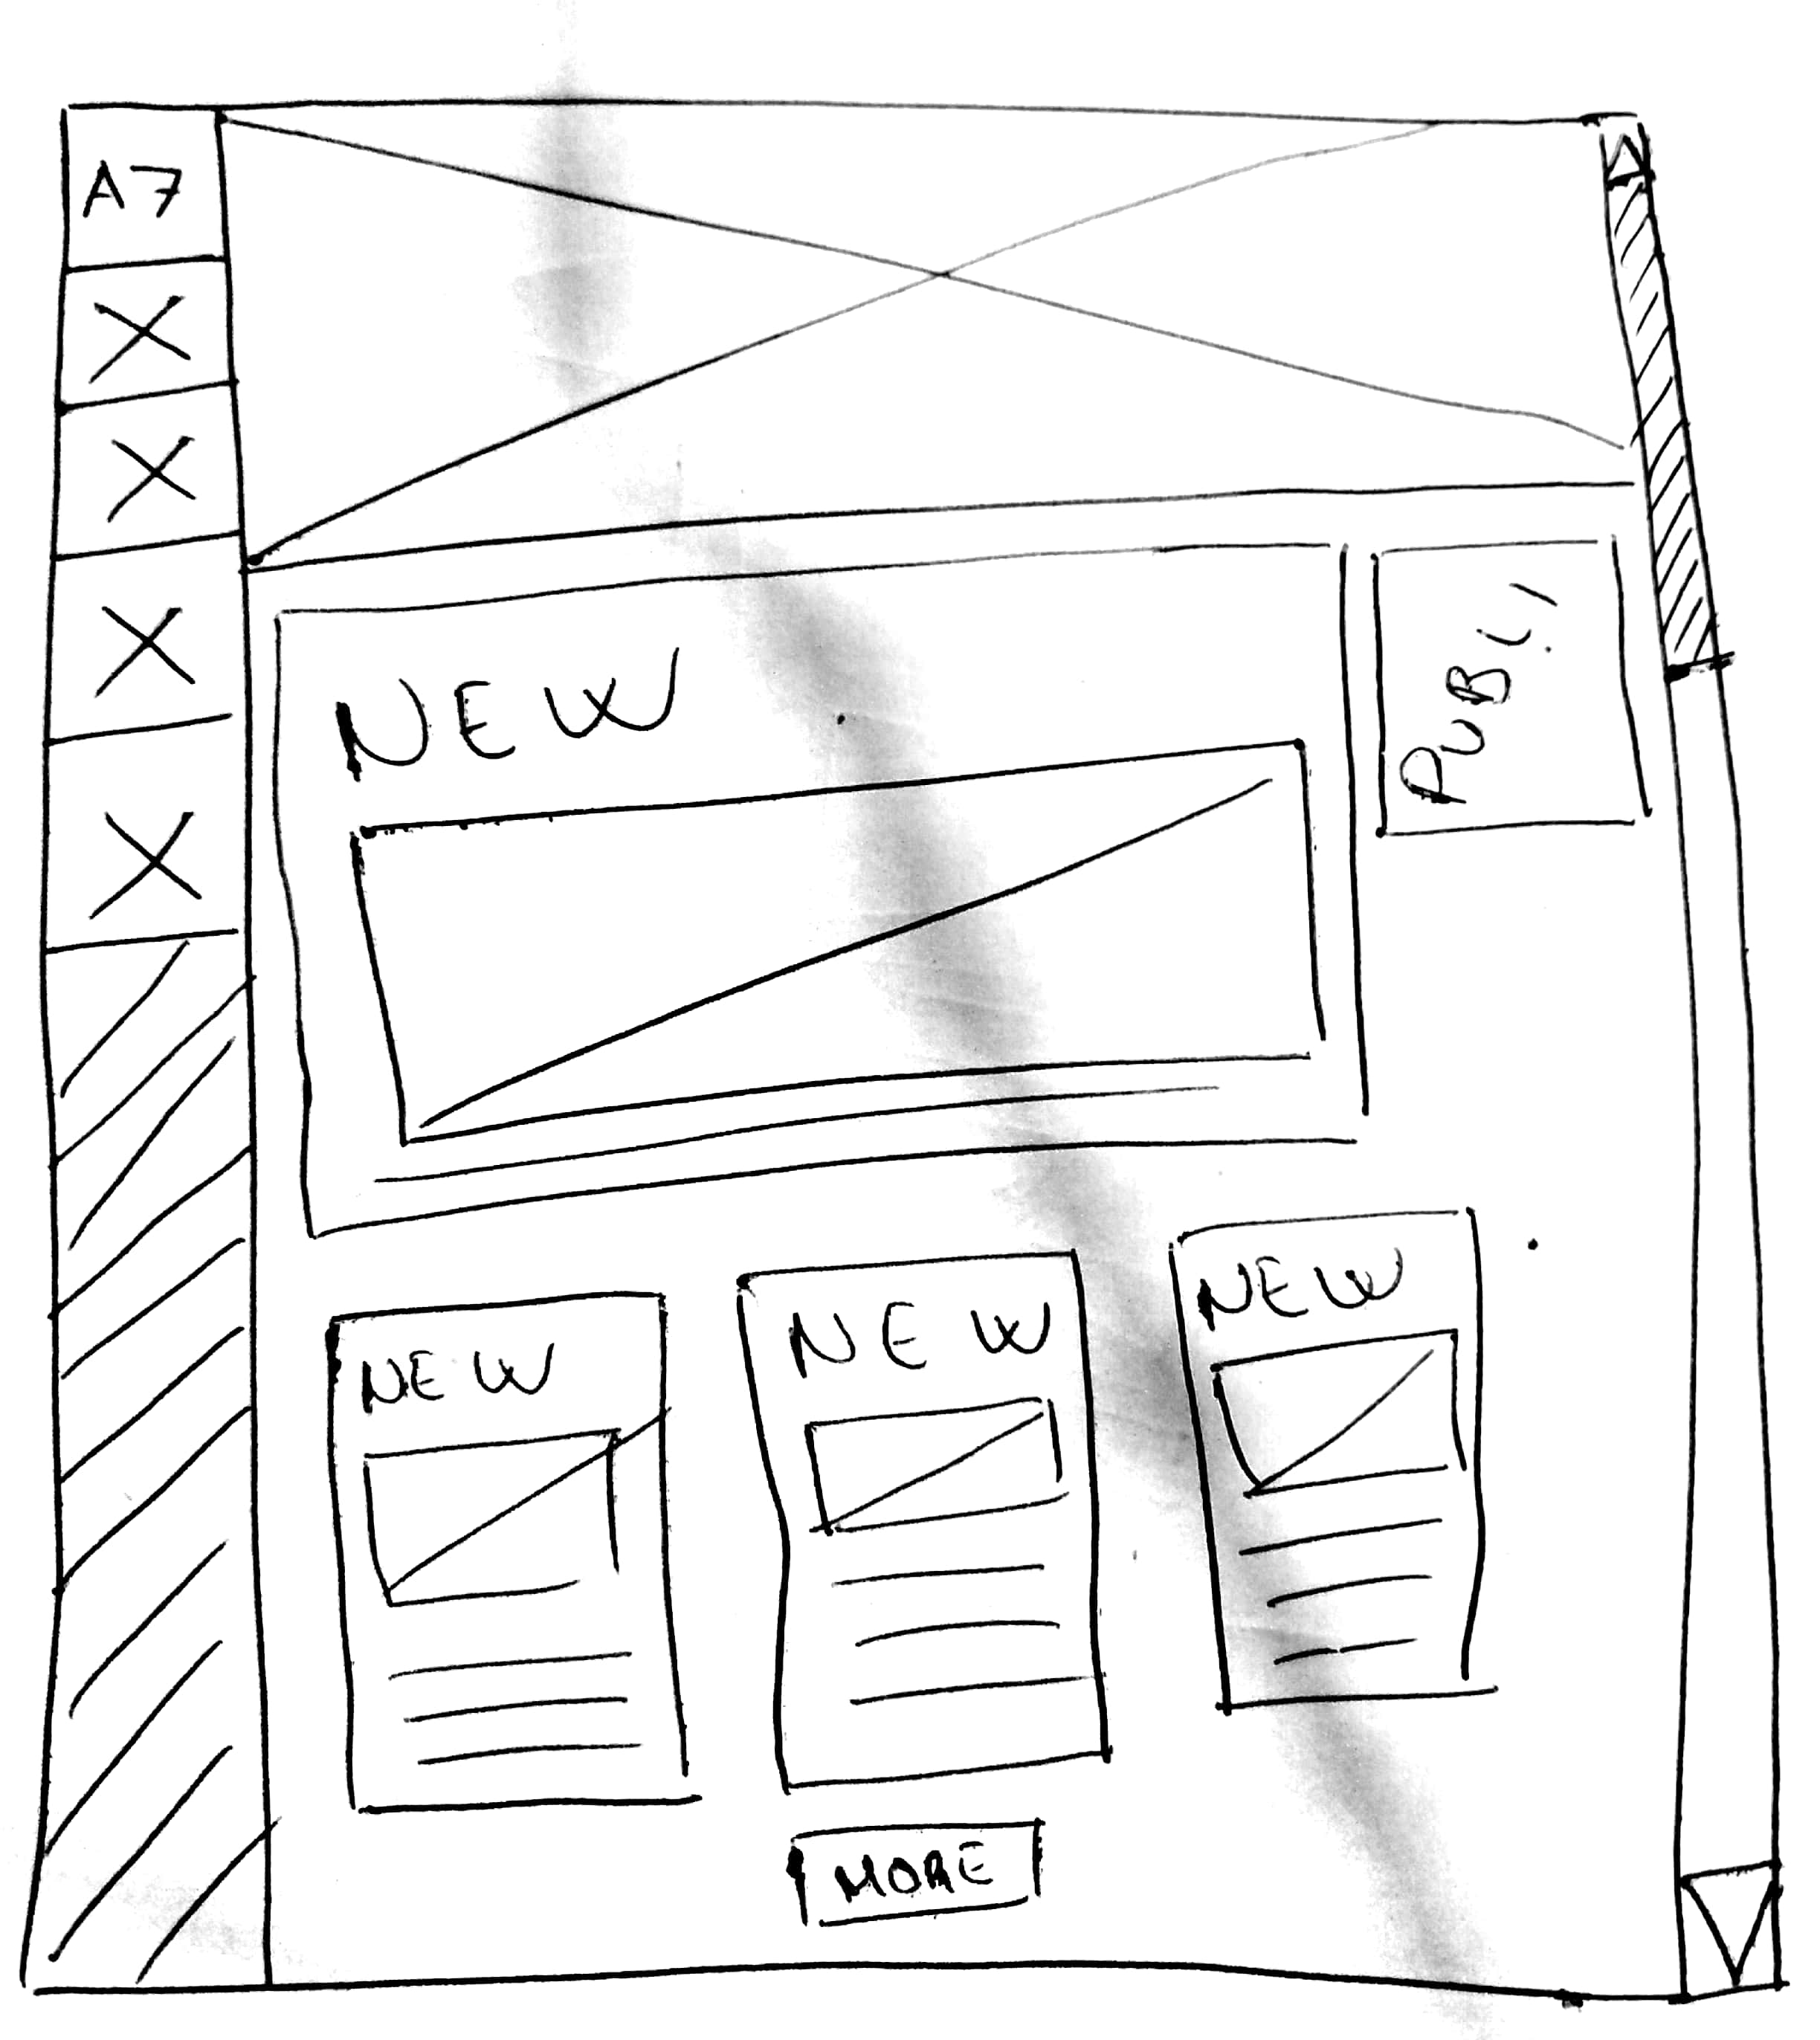 A7
NEW
PUBLI
NEW
NEW
NEW
MORE